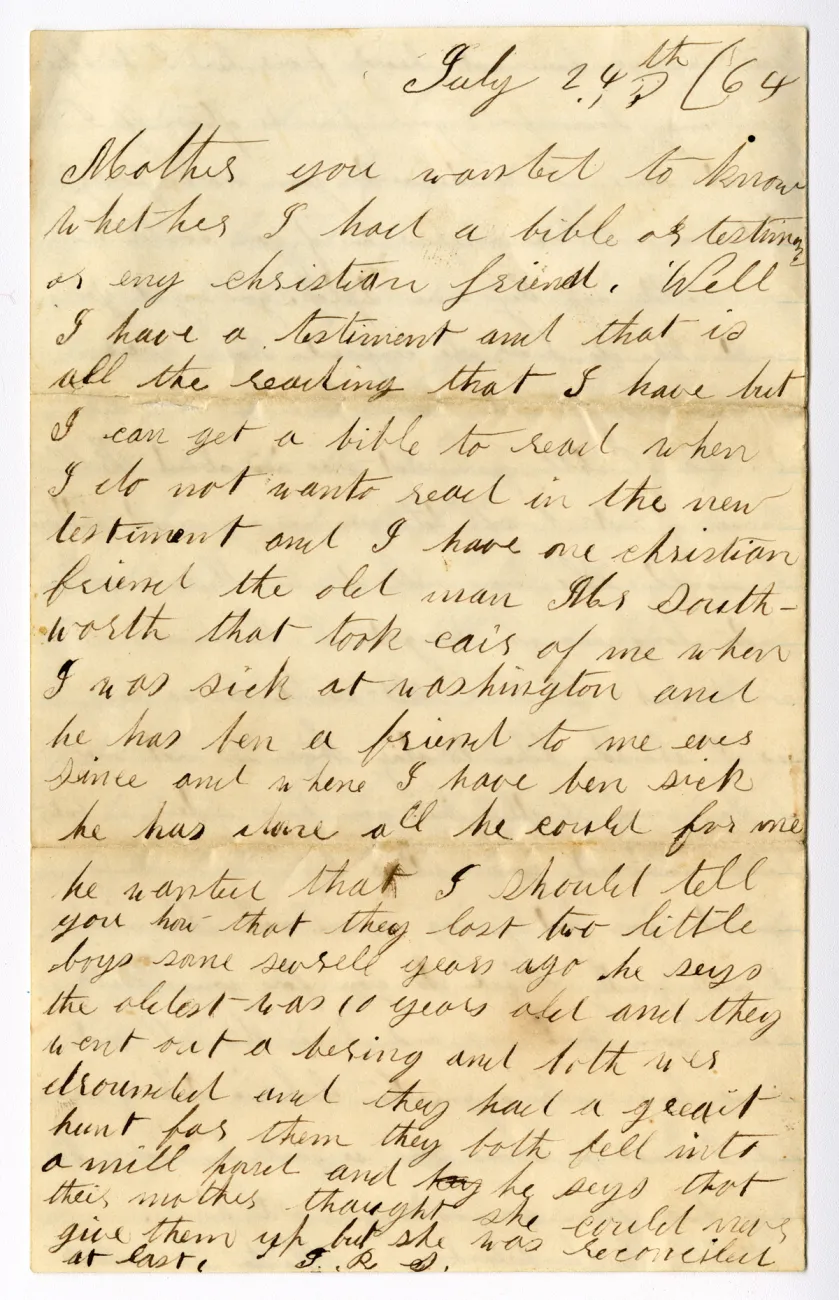 July 24th (64
Mother you wanted to know
whether I had a bible or testiment
or eny christian friend. Well
I have a testiment and that is
all the reading that I have but
I can get a bible to read when
I do not wanto read in the new
testiment and I have one christian
friend the old man Mr South-
worth that took cair of me when
I was sick at washington and
he has ben a friend to me ever
since and where I have ben sick
he has done all he could for me
he wanted that I should tell
you how that they lost two little
boys some severell years ago he seys
the oldest was 10 years old and they
went out a bering and both wer
drounded and they had a greait
hunt for them they both fell into
a mill pond and he seys that
their mother thought she could never
give them up but she was reconciled
at last. S. R. S.